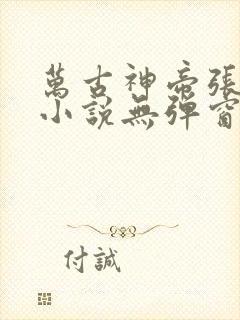 萬古神帝張
小說無彈窗
付誠